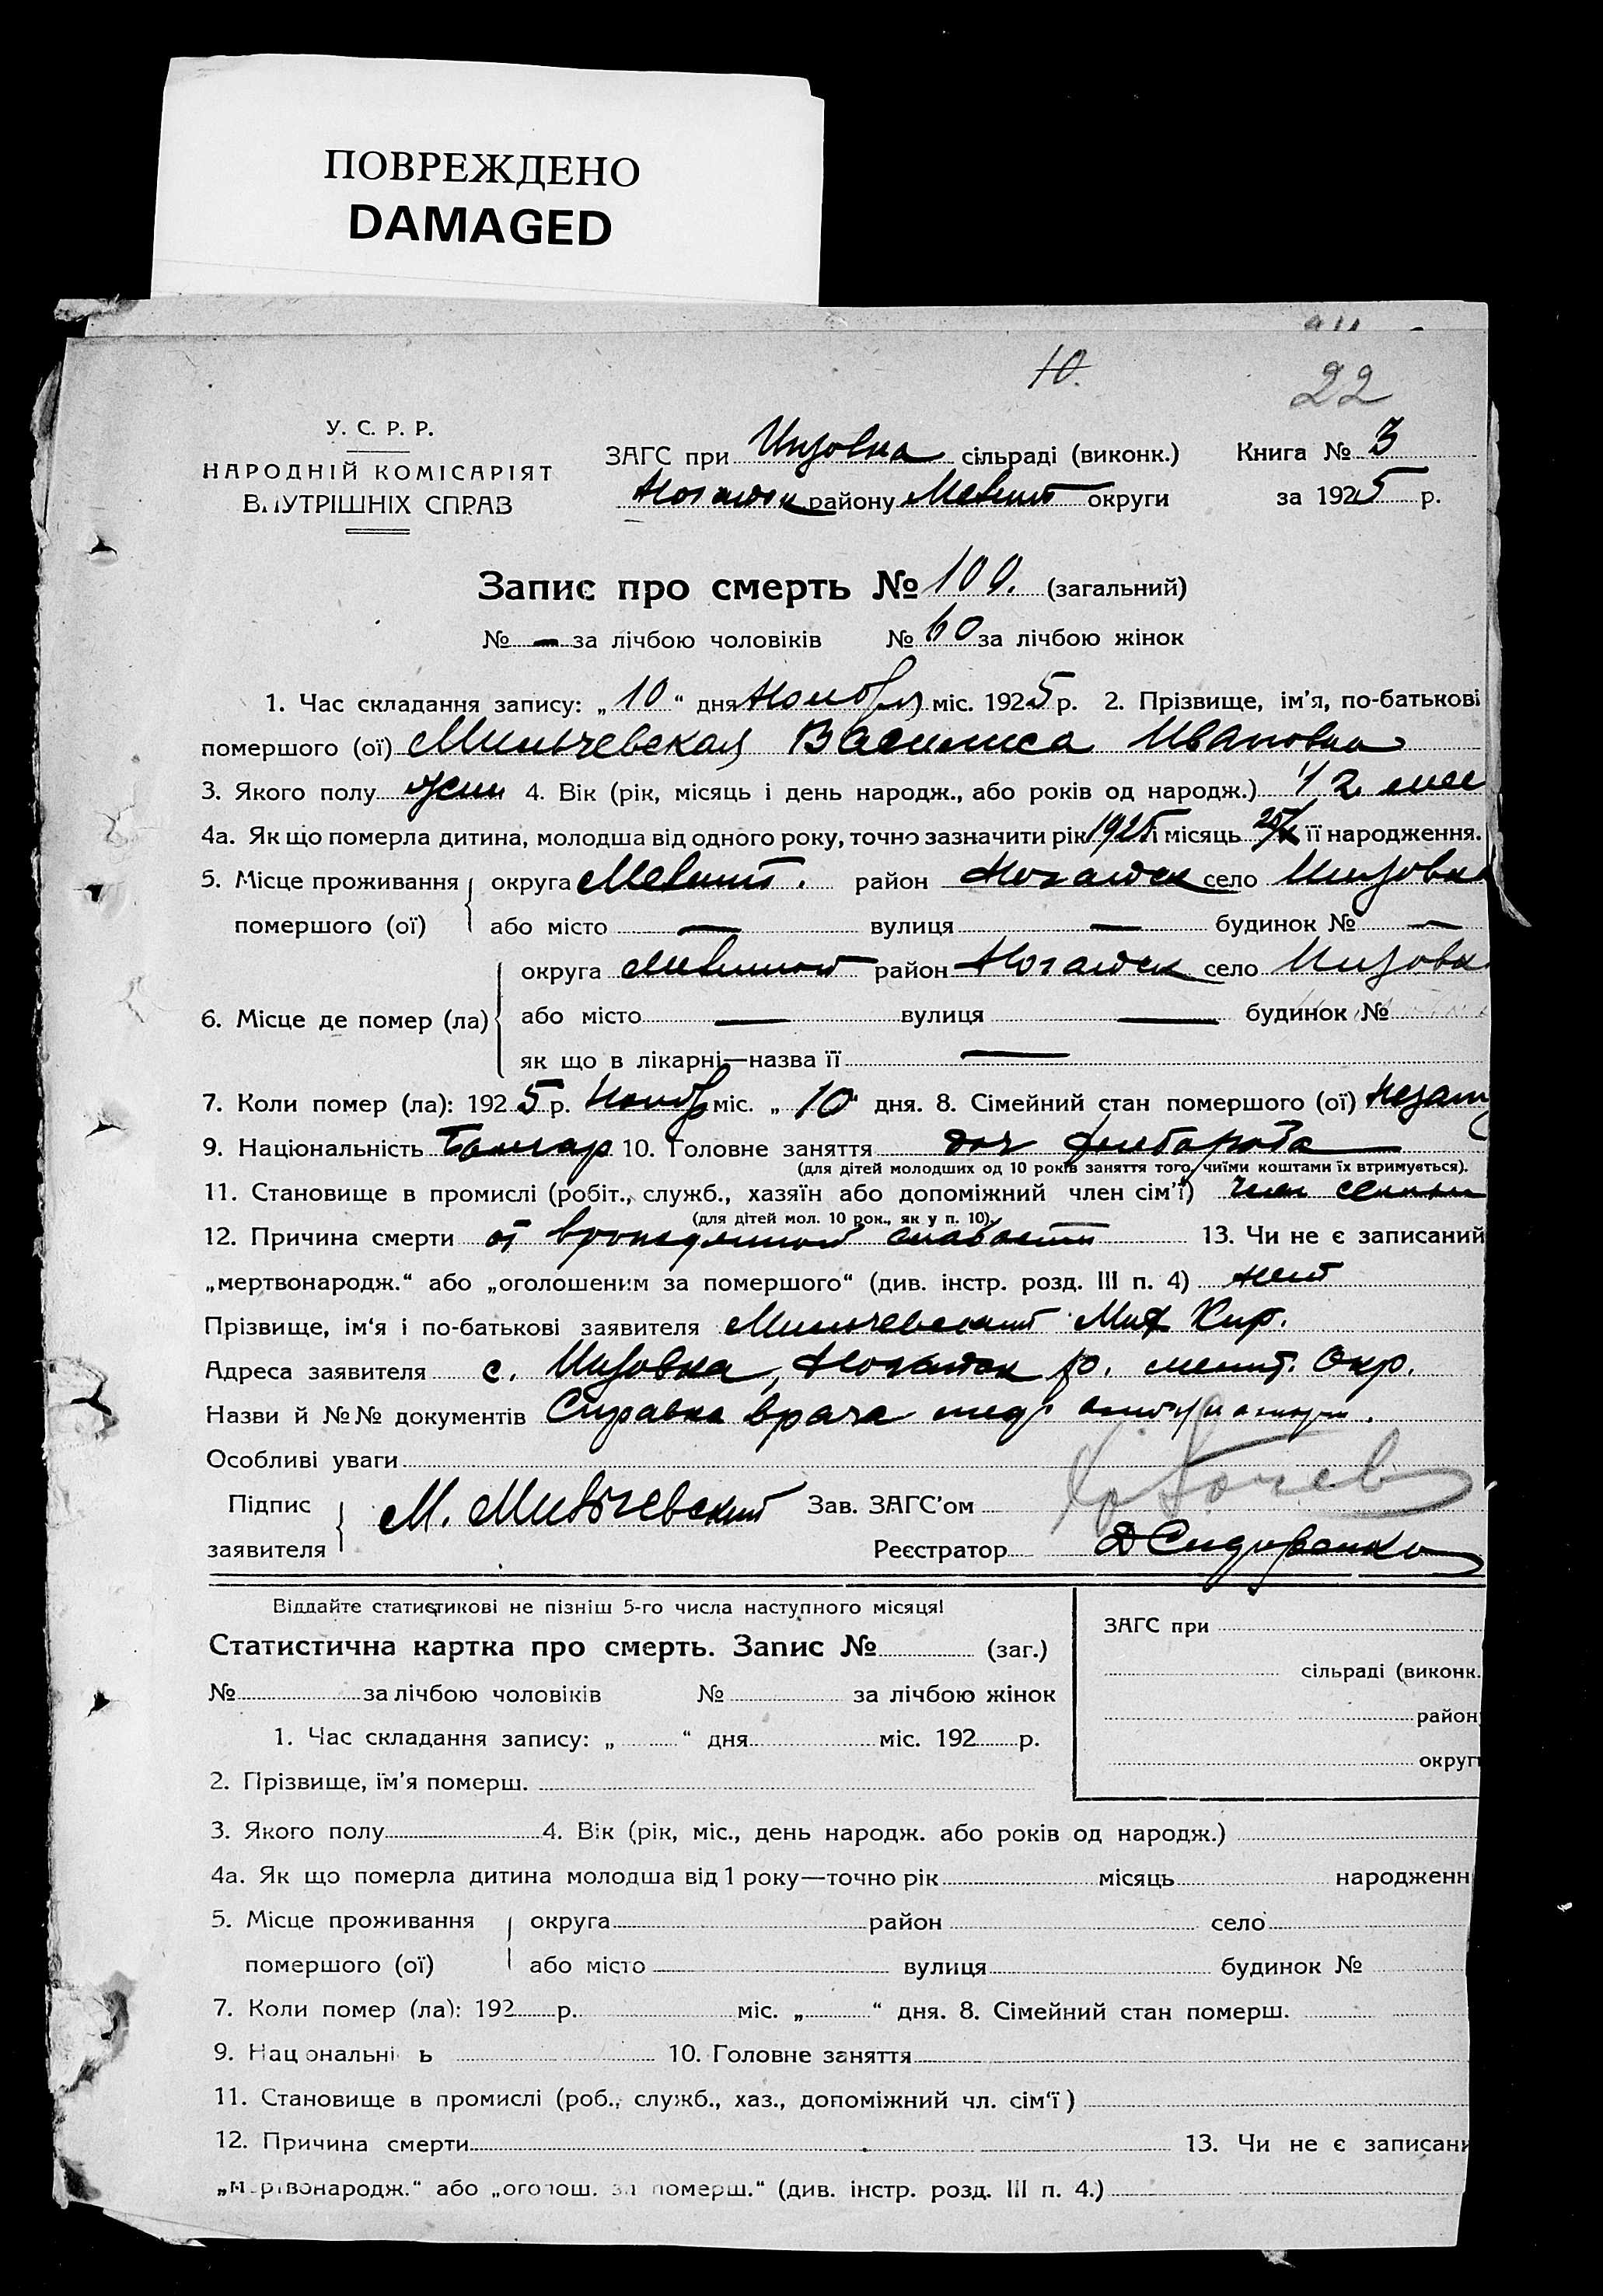 ПОВРЕЖДЕНО
DAMAGED
10.
22
У. С. Р. Р.
НАРОДНІЙ КОМІСАРІЯТ
ВНУТРІШНІХ СПРАВ
ЗАГС при Инзовка сільраді (виконк.) Книга № 3
Ногайск району Мелит округи за 1925 р.
Запис про смерть № 100. (загальний)
№ — за лічбою чоловіків № 60 за лічбою жінок
1. Час складання запису: „ 10 “ дня Ноября міс. 1925 р. 2. Прізвище, ім’я, по-батькові
помершого (ої) Мильчевская Василиса Ивановна
3. Якого полу жен 4. Вік (рік, місяць і день народж., або років од народж.) 1/2 мес
4а. Як що померла дитина, молодша від одного року, точно зазначити рік 1925 і місяць її народження.
5. Місце проживання округа Мелит. район Ногайск село Инзовка
помершого (ої) або місто — вулиця — будинок № —
округа Мелитоп район Ногайск село Инзовк
6. Місце де помер (ла) або місто — вулиця — будинок №
як що в лікарні—назва її —
7. Коли помер (ла): 1925 р. Ноябр міс. „ 10 “ дня. 8. Сімейний стан помершого (ої) Незам
9. Національність Болгар 10. Головне заняття доч хлебороба
(для дітей молодших од 10 років заняття того, чиїми коштами їх втримується).
11. Становище в промислі (робіт., служб., хазяїн або допоміжний член сім’ї) член семьи
(для дітей мол. 10 рок., як у п. 10).
12. Причина смерти от врожденной слабости 13. Чи не є записаний
„мертвонародж.“ або „оголошеним за помершого“ (див. інстр. розд. III п. 4) нет
Прізвище, ім‘я і по-батькові заявителя Мильчевский Мих Кир.
Адреса заявителя с. Инзовка, Ногайск р. мелит. Окр.
Назви й №№ документів Справка врача мед.
Особливі уваги
Підпис
заявителя М. Мильчевский Зав. ЗАГС’ом
Реєстратор Д Сидоренко
Віддайте статистикові не пізніш 5-го числа наступного місяця!
Статистична картка про смерть. Запис № (заг.)
№ за лічбою чоловіків № за лічбою жінок
ЗАГС при
сільраді (виконк.
район
округи
1. Час складання запису: „ “ дня міс. 192 р.
2. Прізвище, ім’я померш.
3. Якого полу 4. Вік (рік, міс., день народж. або років од народж.)
4а. Як що померла дитина молодша від 1 року—точно рік місяць народженн
5. Місце проживання округа район село
помершого (ої) або місто вулиця будинок №
7. Коли помер (ла): 192 р. міс. „ “ дня. 8. Сімейний стан померш.
9. Нац ональні ь 10. Головне заняття
11. Становище в промислі (роб., служб., хаз., допоміжний чл. сім‘ї)
12. Причина смерти 13. Чи не є записани
„мертвонародж.“ або „оголош. за померш.“ (див. інстр. розд. III п. 4.)